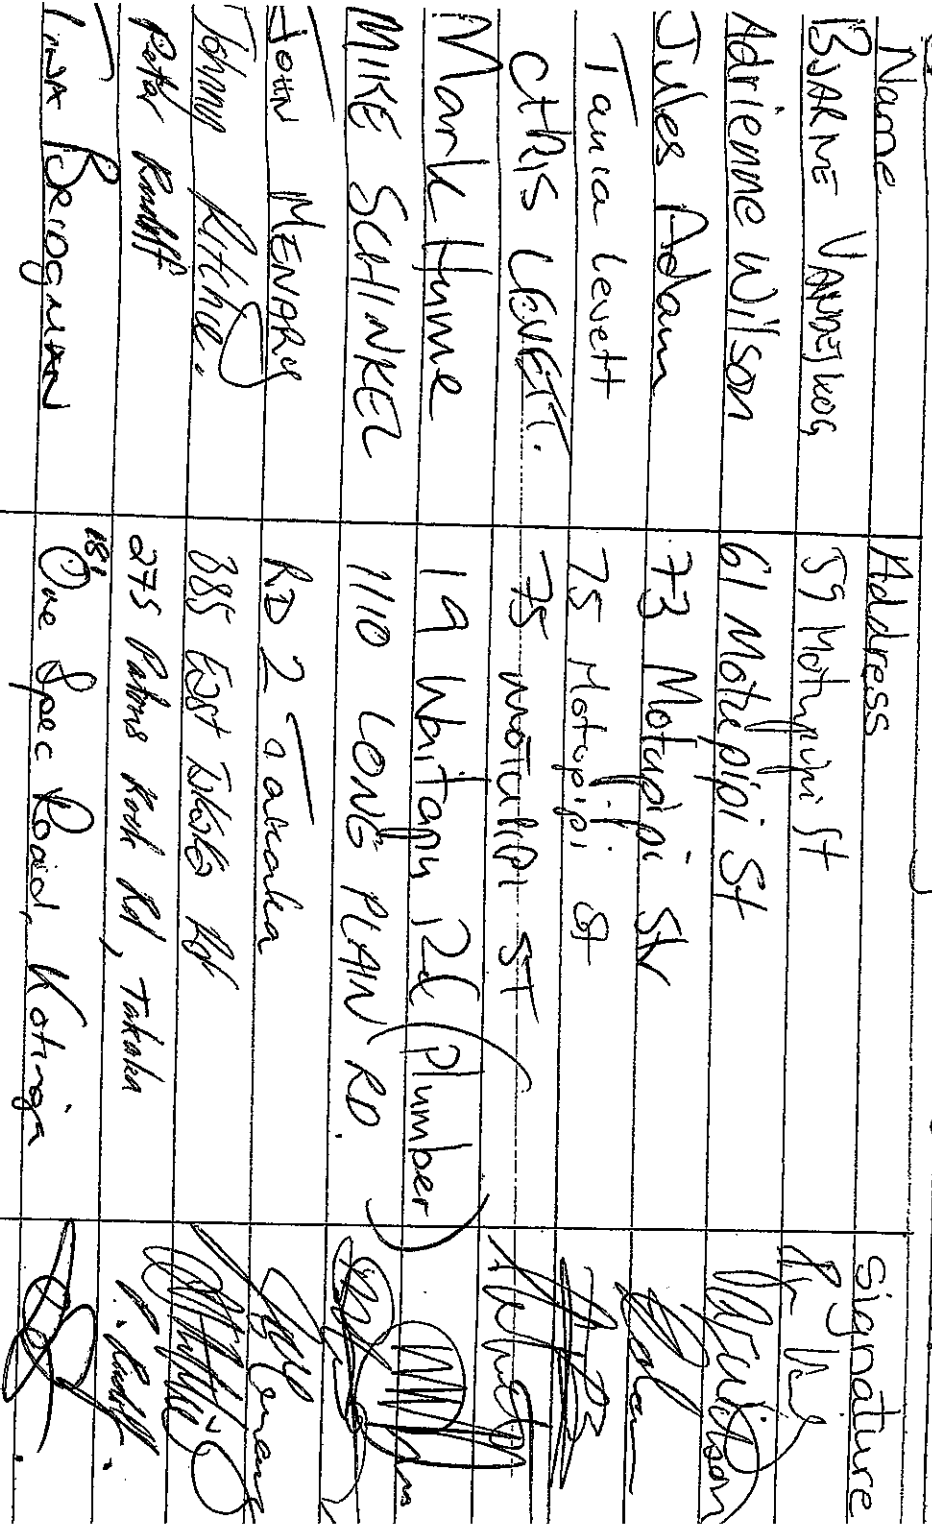 Name Address Signature
BJARNE VANDESKOG 59 Motupipi St
Adrienne Wilson 61 Motupipi St AMWilson
Jules Adam 73 Motupipi Str
Tania Levett 75 Motopipi St
CHRIS LEVETT. 75 MOTUPIPI ST
Mark Hume 19 Waitapu Rd (Plumber)
MIKE SCHINKEL 1110 LONG PLAIN RD.
JOHN MENARY RD 2 Takaka
Johnny Ritchie. 385 East Rd
Peter Rudolf 275 Patons Rock Rd, Takaka P. Rudolf
TINA BRIDGMAN 181 One Spec Road, Kotinga